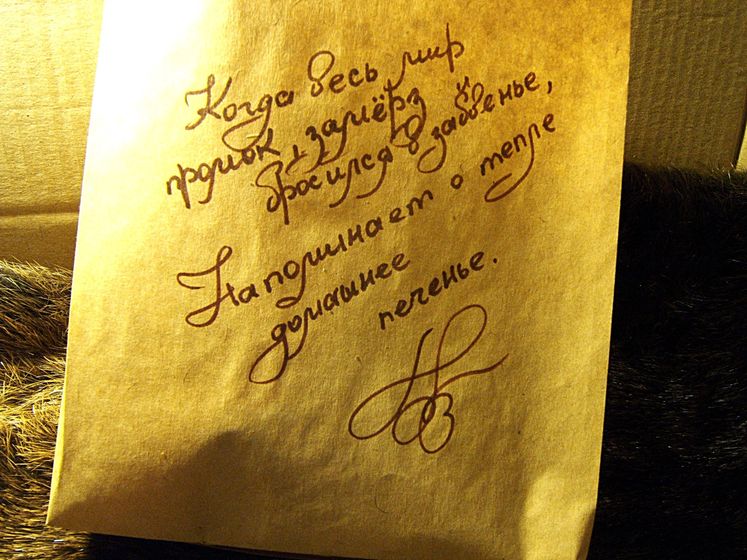 Когда весь мир
промок, замёрз и
бросился в забвенье,
Напоминает о тепле
домашнее
печенье.